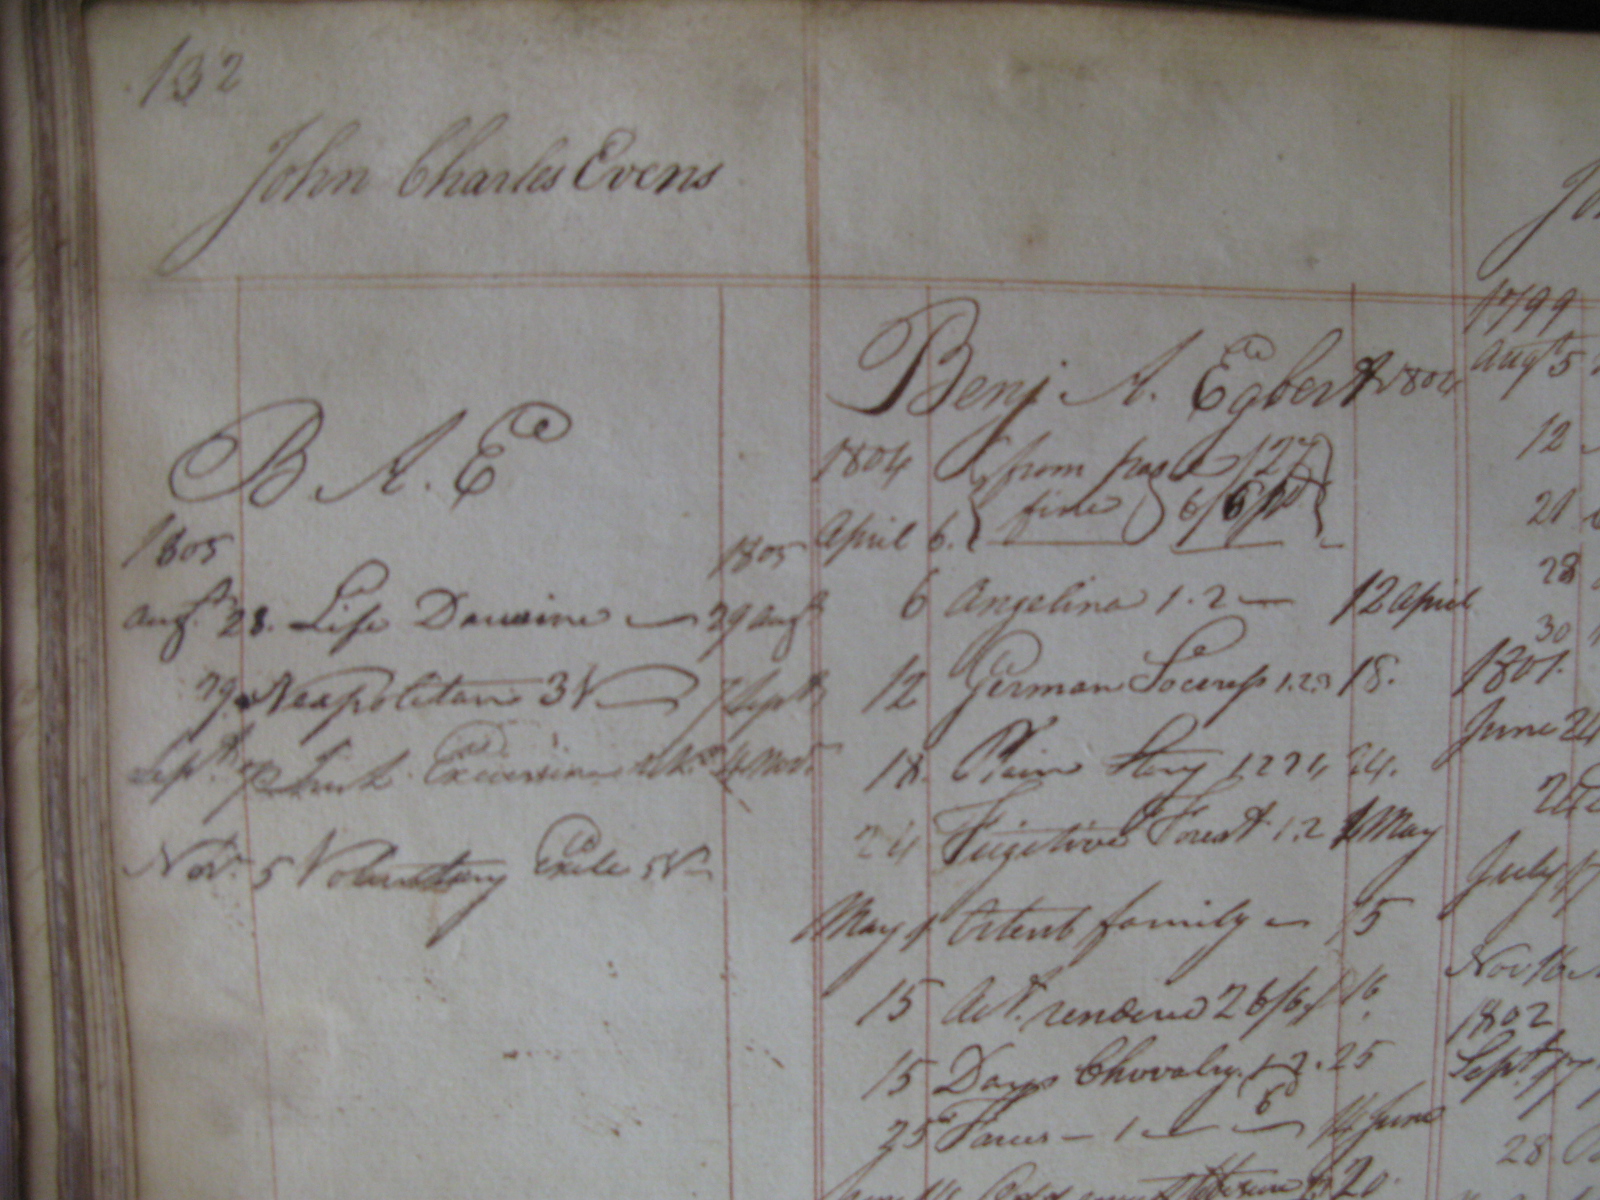 132
John Charles Evens
B. A. E
1805 1805
Augt 28. Life Darwine 29 Augt
29 Neapolitan 3V 7 Septr
Septr 7 Excursion 4 Novr
Novr 5 Voluntary Exile 5V
Benj A. Egbert 1804
1804 from page 127
April 6. fine 6/6 pd
6 Angelina 1.2 12 April
12 German Soceress 1.2.3 18.
18. Plain Story 1 2 3 4 24.
24 Fugitive Forest 1.2 1 May
May 1 family 15
15 Act. rendered 26/6 16
15 Days Chovalry. 1 2. 25
25 1 6 14 June
20
1799
Augt 5
12
21
28
30
1801.
June 24
July 17
Nov 16
1802
Sept 17
28